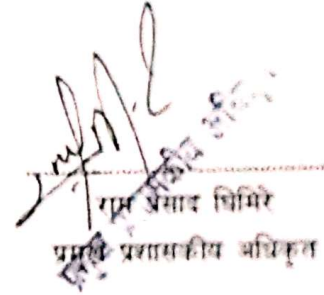 राम प्रसाद घिमिरे
प्रमुख प्रशासकीय अधिकृत